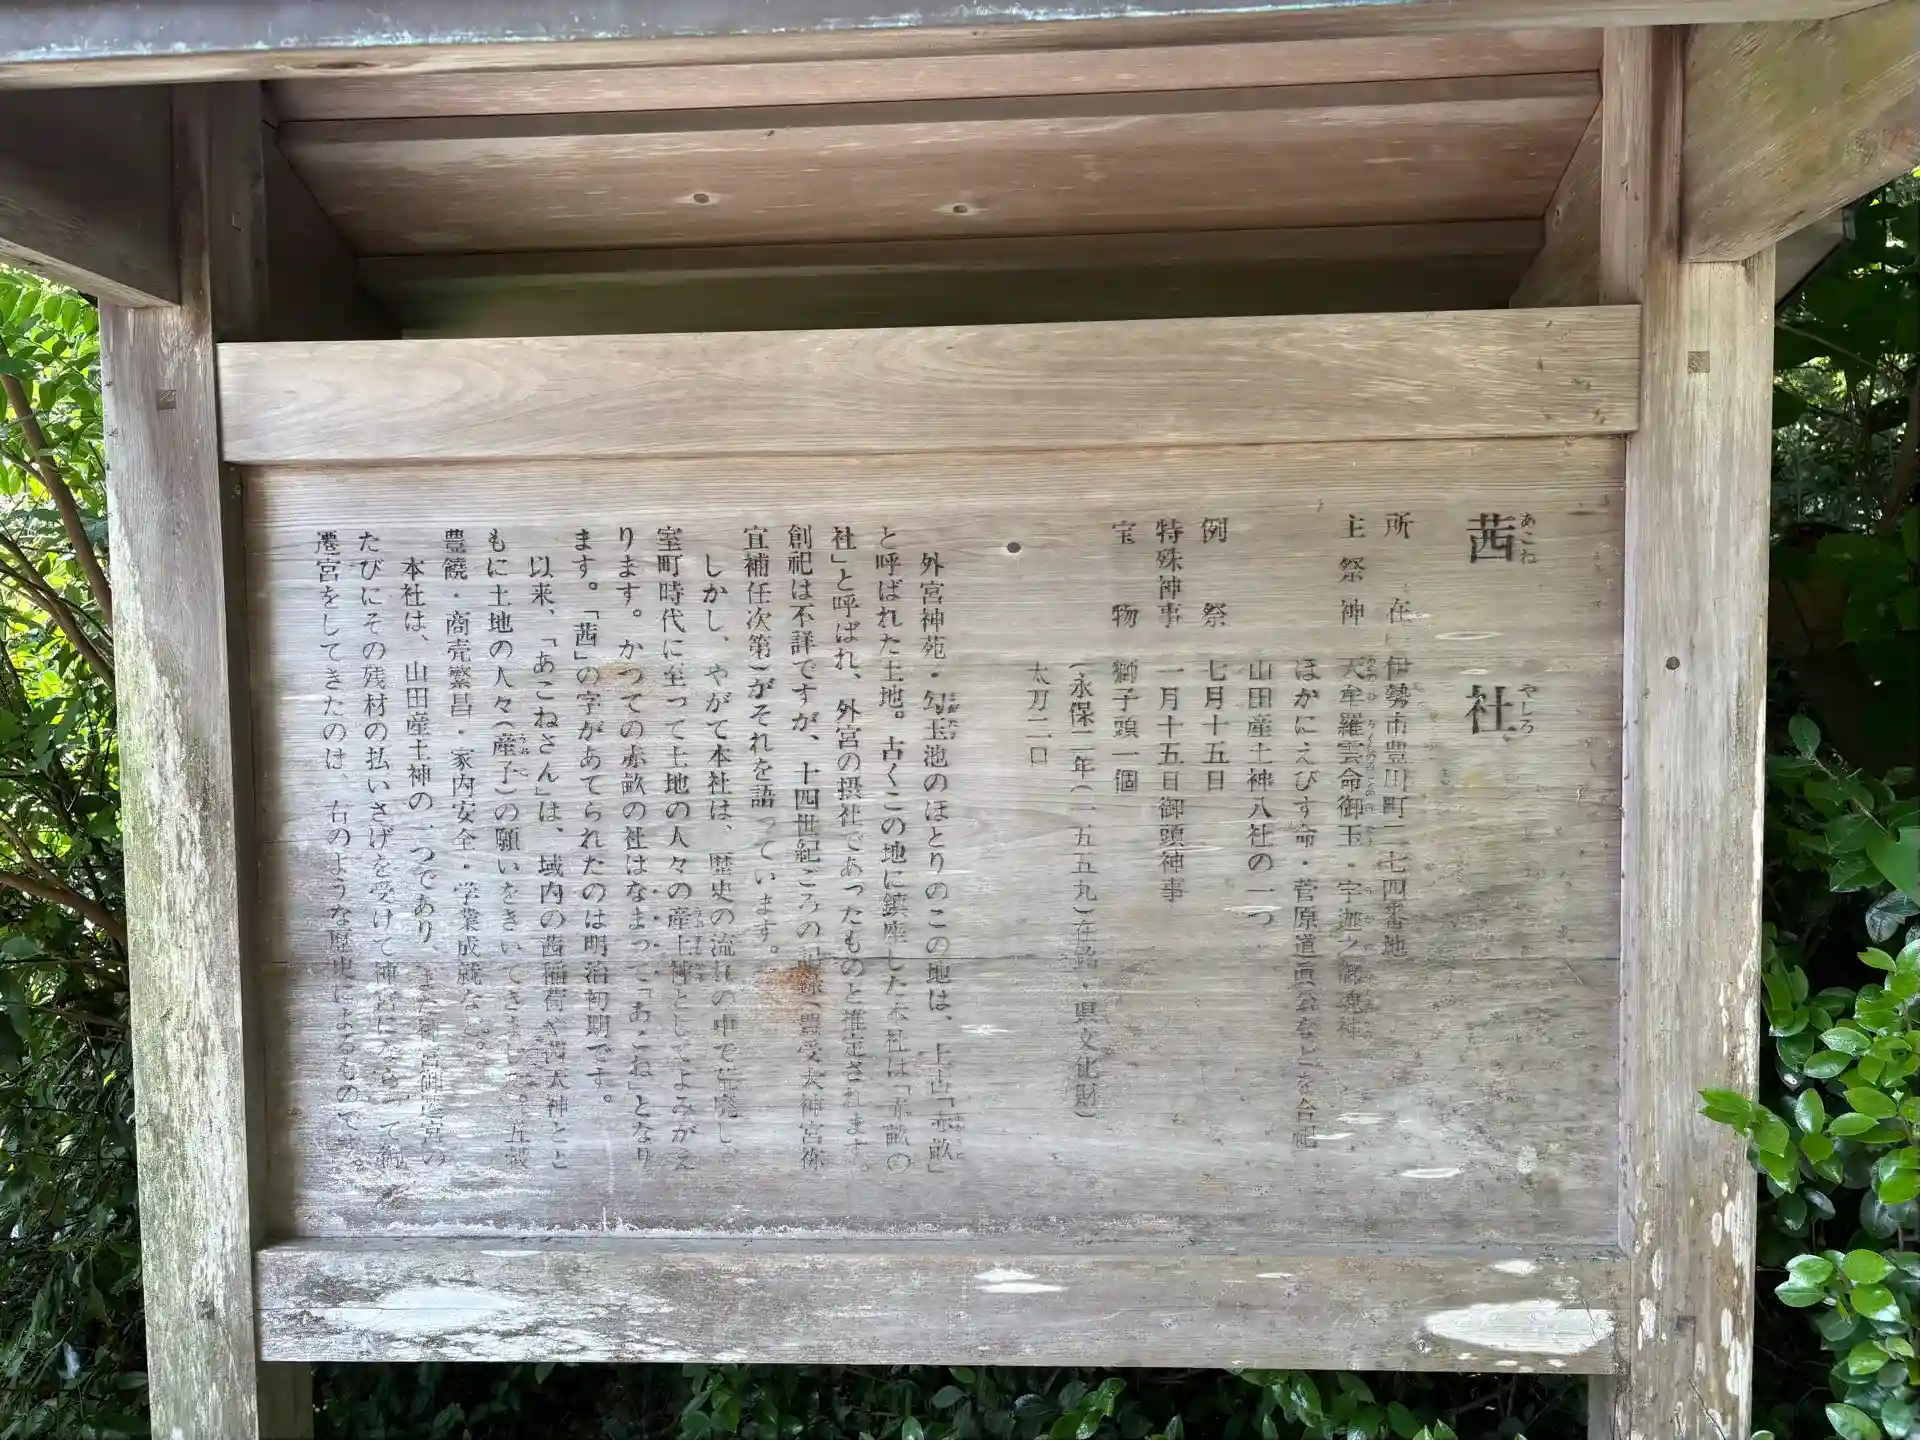 茜社
あこね やしろ
所在 伊勢市豊川町二七四番地
主祭神 天牟羅雲命御玉・宇迦之御魂神
ほかにえびす命・菅原道真公などを合祀
山田産土神八社の一つ
例祭 七月十五日
特殊神事 一月十五日御頭神事
宝物 獅子頭一個
(永保二年(一五五九)在銘・県文化財)
太刀二口
外宮神苑・勾玉池のほとりのこの地は、上古「赤畝」
と呼ばれた土地。古くこの地に鎮座した本社は「赤畝の
社」と呼ばれ、外宮の摂社であったものと推定されます。
創祀は不詳ですが、十四世紀ごろの記録(豊受大神宮祢
宜補任次第)がそれを語っています。
しかし、やがて本社は、歴史の流れの中で荒廃し、
室町時代に至って土地の人々の産土神としてよみがえ
ります。かつての赤畝の社はなまって「あこね」となり
ます。「茜」の字があてられたのは明治初期です。
以来、「あこねさん」は、域内の茜稲荷や茜大神とと
もに土地の人々(産子)の願いをきいてきました。五穀
豊饒・商売繁昌・家内安全・学業成就など。
本社は、山田産土神の一つであり、また神宮御遷宮の
たびにその残材の払いさげを受けて神宮にならって御
遷宮をしてきたのは、右のような歴史によるものです。